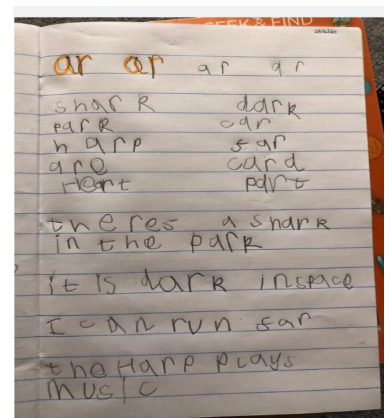 SEEK & FIND
ar ar ar ar
shark dark
park car
harp far
are card
Heart part
theres a shark
in the park
it is dark inspace
I can run far
the Harp plays
music